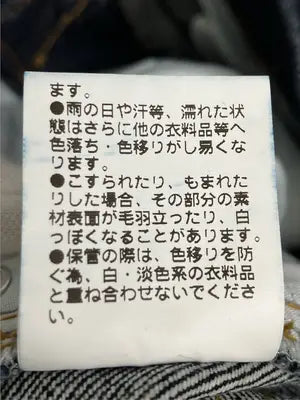 ます。
●雨の日や汗等、濡れた状
態はさらに他の衣料品等へ
色落ち・色移りがし易くな
ります。
●こすられたり、もまれた
りした場合、その部分の素
材表面が毛羽立ったり、白
っぽくなることがあります。
●保管の際は、色移りを防
ぐ為、白・淡色系の衣料品
と重ね合わせないでくださ
い。